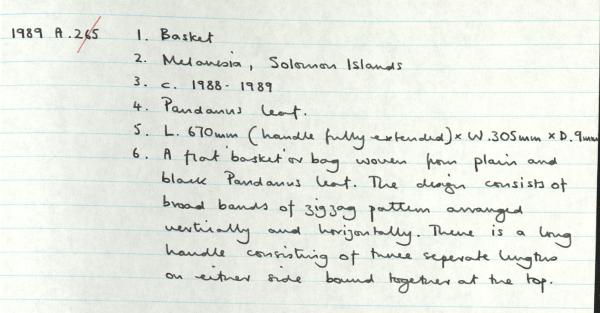 1989 A.265 1. Basket
2. Melanesia, Solomon Islands
3. c. 1988-1989
4. Pandanus leaf.
5. L. 670mm (handle fully extended) x W. 305mm x D. 9mm
6. A flat 'basket' or bag woven from plain and
black Pandanus leaf. The design consists of
broad bands of zigzag pattern arranged
vertically and horizontally. There is a long
handle consisting of three seperate lengths
on either side bound together at the top.